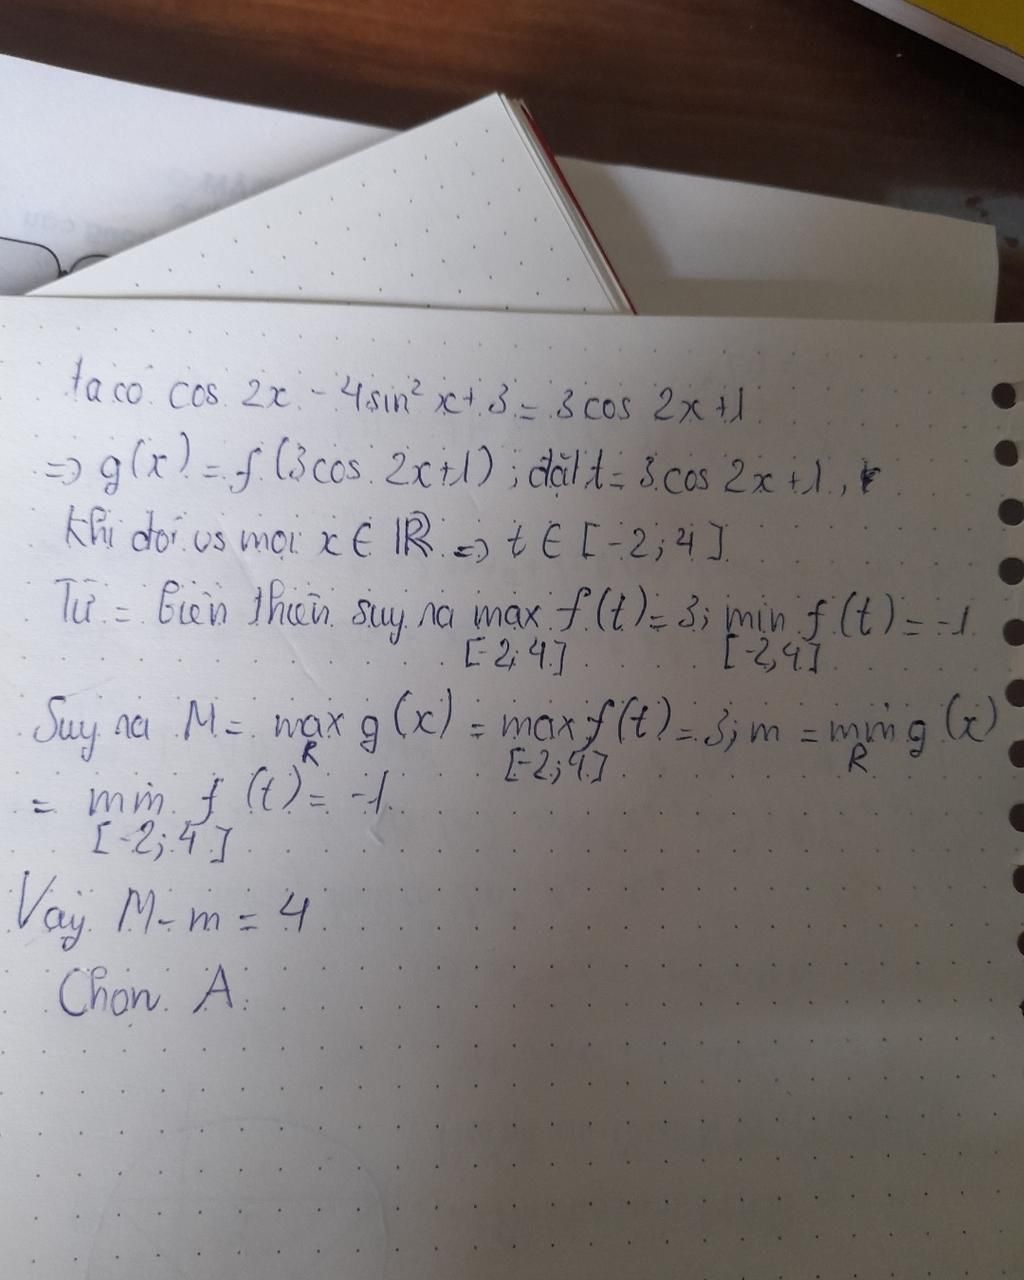 ta có cos 2x - 4sin² x + 3 = 3 cos 2x + 1
=> g(x) = f (3cos 2x+1) ; đặt t = 3 cos 2x + 1,
Khi đối vs mọi x ∈ ℝ => t ∈ [-2; 4]
Từ = biên thiên suy ra max f(t) = 3; min f(t) = -1
[-2; 4] [-2; 4]
Suy ra M = max g(x) = max f(t) = 3; m = min g(x)
R [-2; 4] R
= min f (t) = -1
[-2; 4]
Vậy M - m = 4
Chọn A.